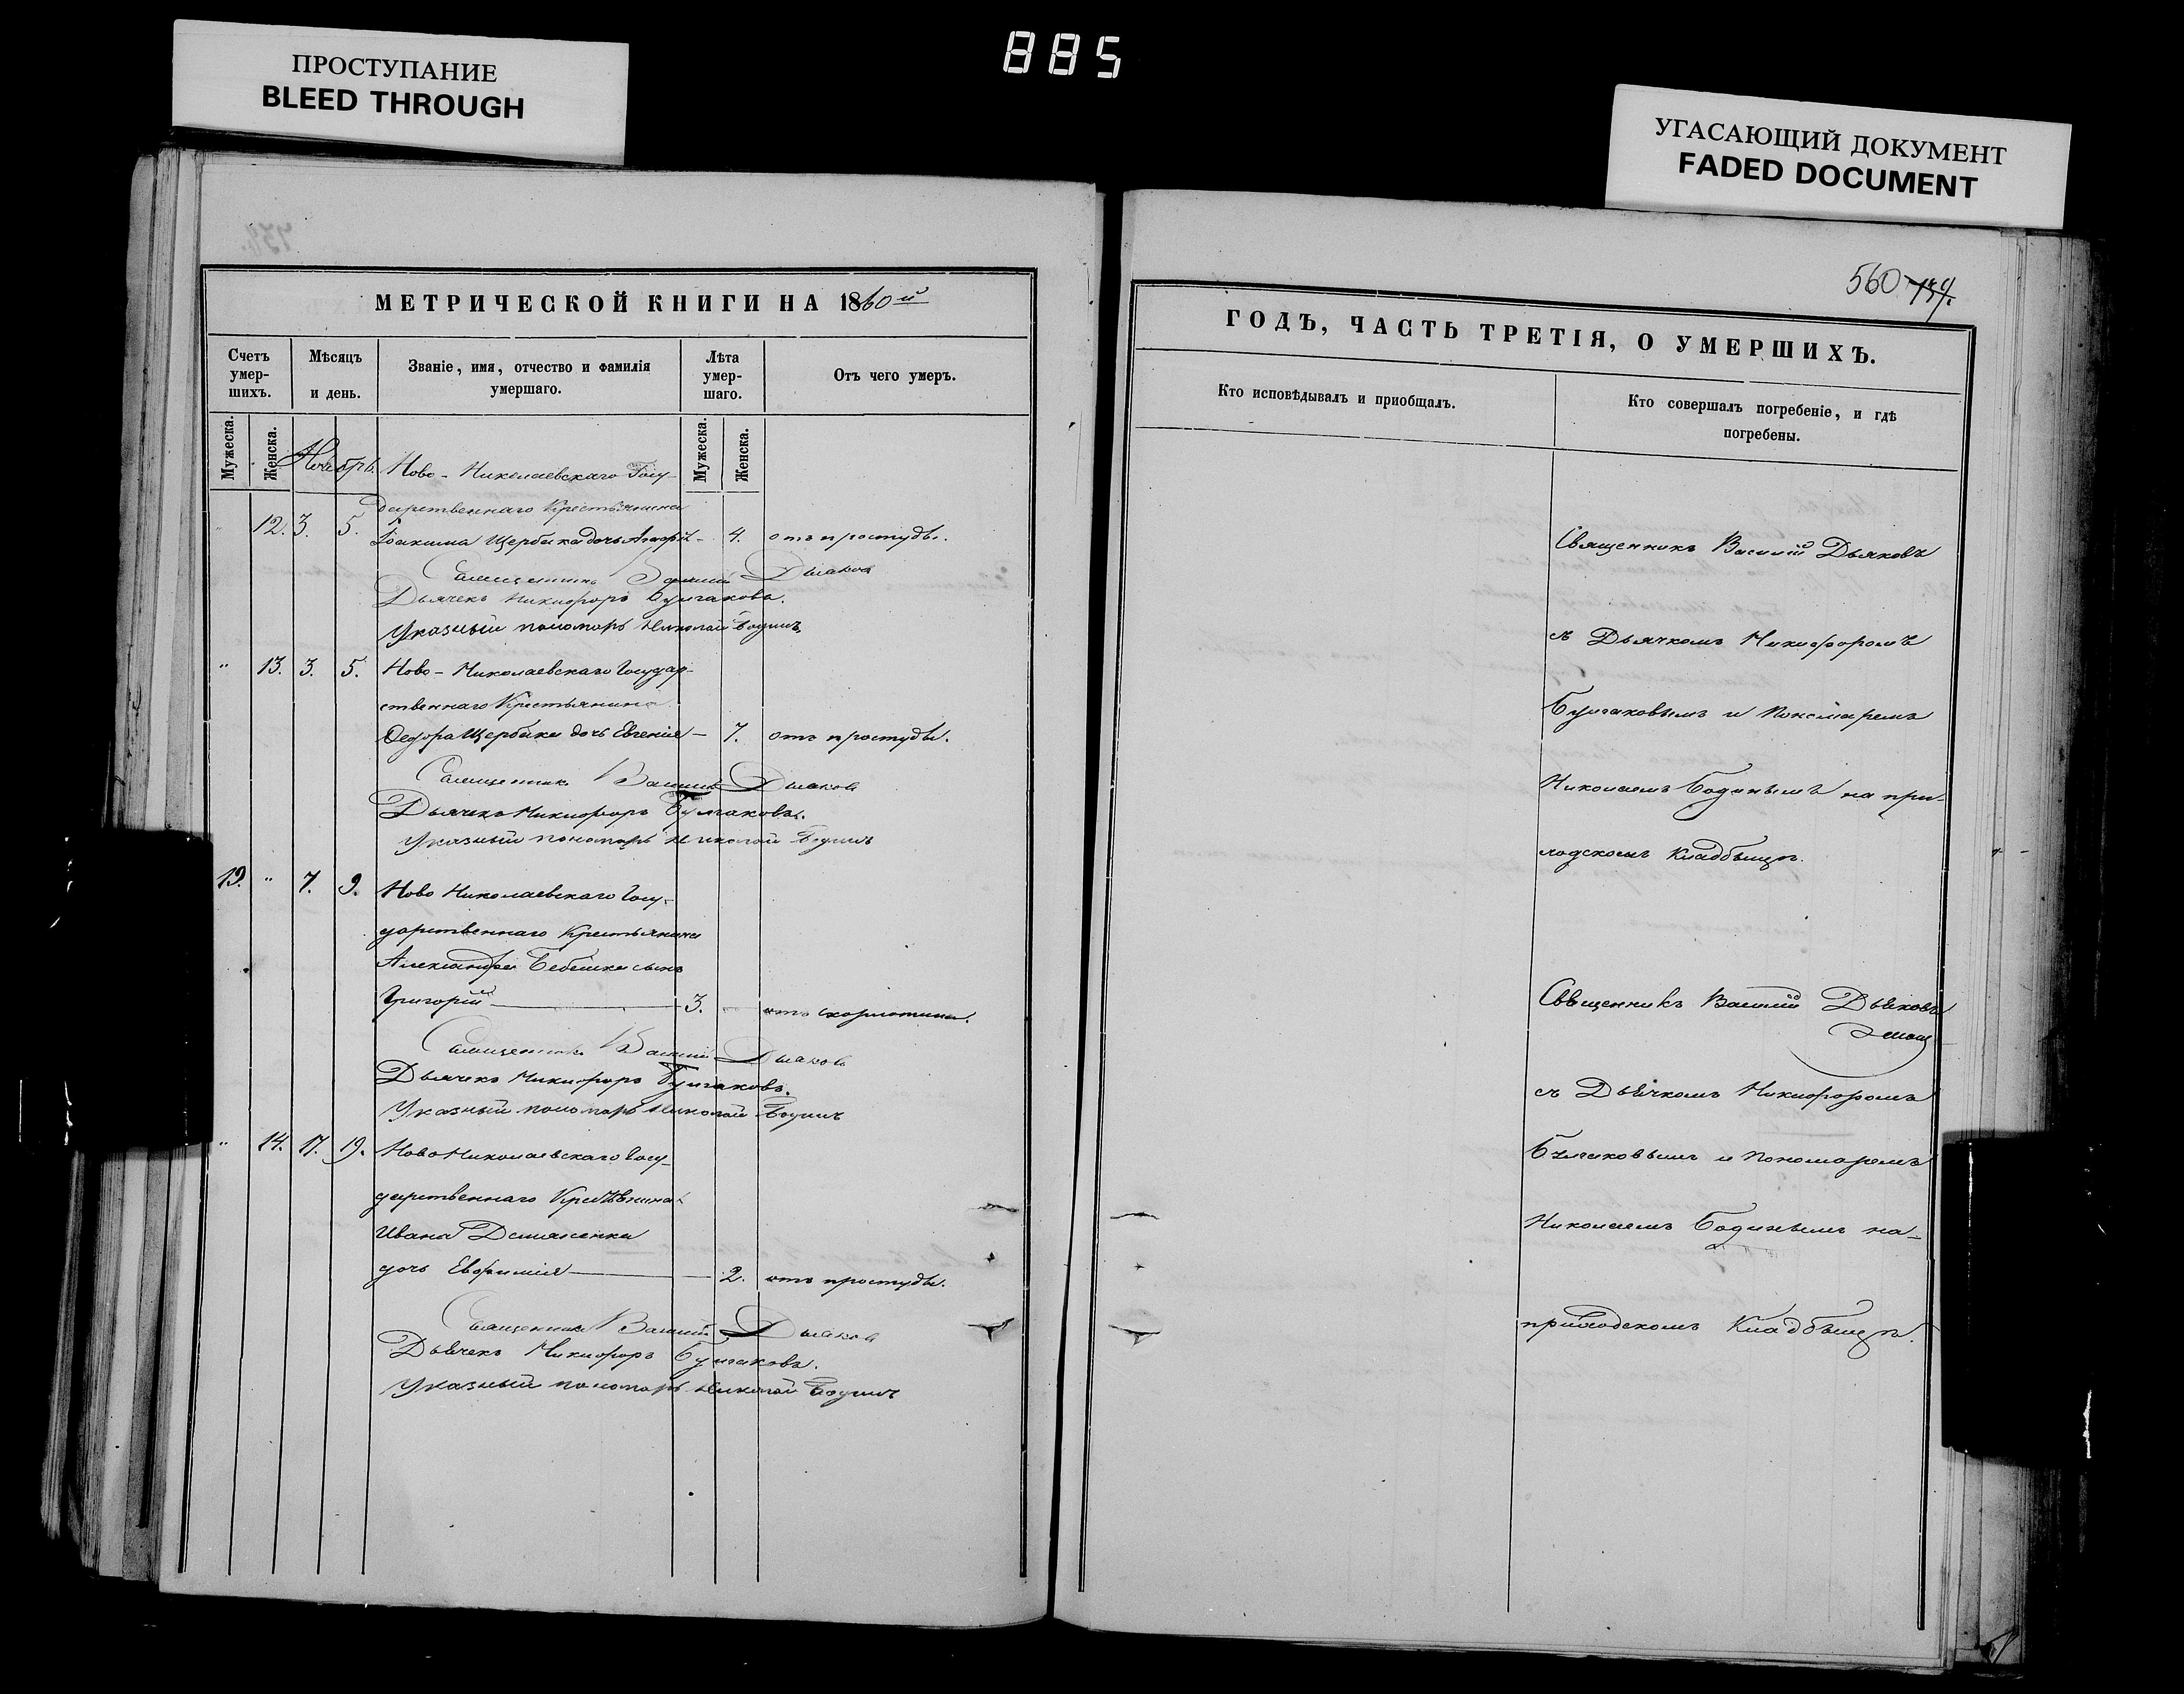 885
ПРОСТУПАНИЕ
BLEED THROUGH
УГАСАЮЩИЙ ДОКУМЕНТ
FADED DOCUMENT
МЕТРИЧЕСКОЙ КНИГИ НА 1860й
Счетъ умер-шихъ.
Мѣсяцъ и день.
Званіе, имя, отчество и фамилія умершаго.
Лѣта умер-шаго.
Отъ чего умеръ.
Мужеска.
Женска.
Мужеска.
Женска.
Ноябрь. Ново-Николаевскаго Госу-
дарственнаго Крестьянина
12. 3. 5. Іоакима Щербака дочь 4. отъ простуды.
Священникъ Василій Дьяковъ
Дьячекъ Никифоръ Булгаковъ.
Указный пономарь Николай Бодинъ
" 13. 3. 5. Ново-Николаевскаго Государ-
ственнаго Крестьянина
Федора Щербака дочь Евгенія — 7. отъ простуды.
Священникъ Василій Дьяковъ
Дьячекъ Никифоръ Булгаковъ.
Указный пономарь Николай Бодинъ
19. " 7. 9. Ново Николаевскаго Госу-
дарственнаго Крестьянина
Александра сынъ
Григорій — 3. отъ скорлотины.
Священникъ Василій Дьяковъ
Дьячекъ Никифоръ Булгаковъ.
Указный пономарь Николай Бодинъ
" 14. 17. 19. Ново Николаевскаго Госу-
дарственнаго
Ивана
дочь Евфимія — 2. отъ простуды.
Священникъ Василій Дьяковъ
Дьячекъ Никифоръ Булгаковъ.
Указный пономарь Николай Бодинъ
560
ГОДЪ, ЧАСТЬ ТРЕТІЯ, О УМЕРШИХЪ.
Кто исповѣдывалъ и пріобщалъ.
Кто совершалъ погребеніе, и гдѣ погребены.
Священникъ Василій Дьяковъ
съ Дьячкомъ Никифоромъ
Булгаковымъ и Пономаремъ
Николаемъ Бодинымъ на при-
ходскомъ Кладбыщѣ.
Священникъ Василій Дьяковъ
съ Дьячкомъ Никифоромъ
Булгаковымъ и Пономаремъ
Николаемъ Бодинымъ на-
приходскомъ Кладбыщѣ.